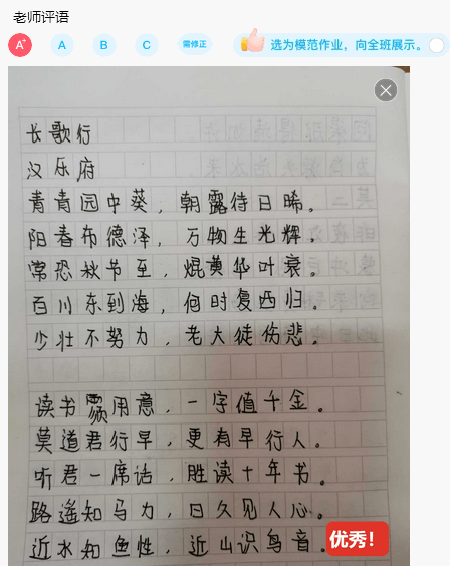 老师评语
A+ A B C 需修正 选为模范作业，向全班展示。
长歌行
汉乐府
青青园中葵，朝露待日晞。
阳春布德泽，万物生光辉。
常恐秋节至，焜黄华叶衰。
百川东到海，何时复西归。
少壮不努力，老大徒伤悲。
读书须用意，一字值千金。
莫道君行早，更有早行人。
听君一席话，胜读十年书。
路遥知马力，日久见人心。
近水知鱼性，近山识鸟音。
优秀！